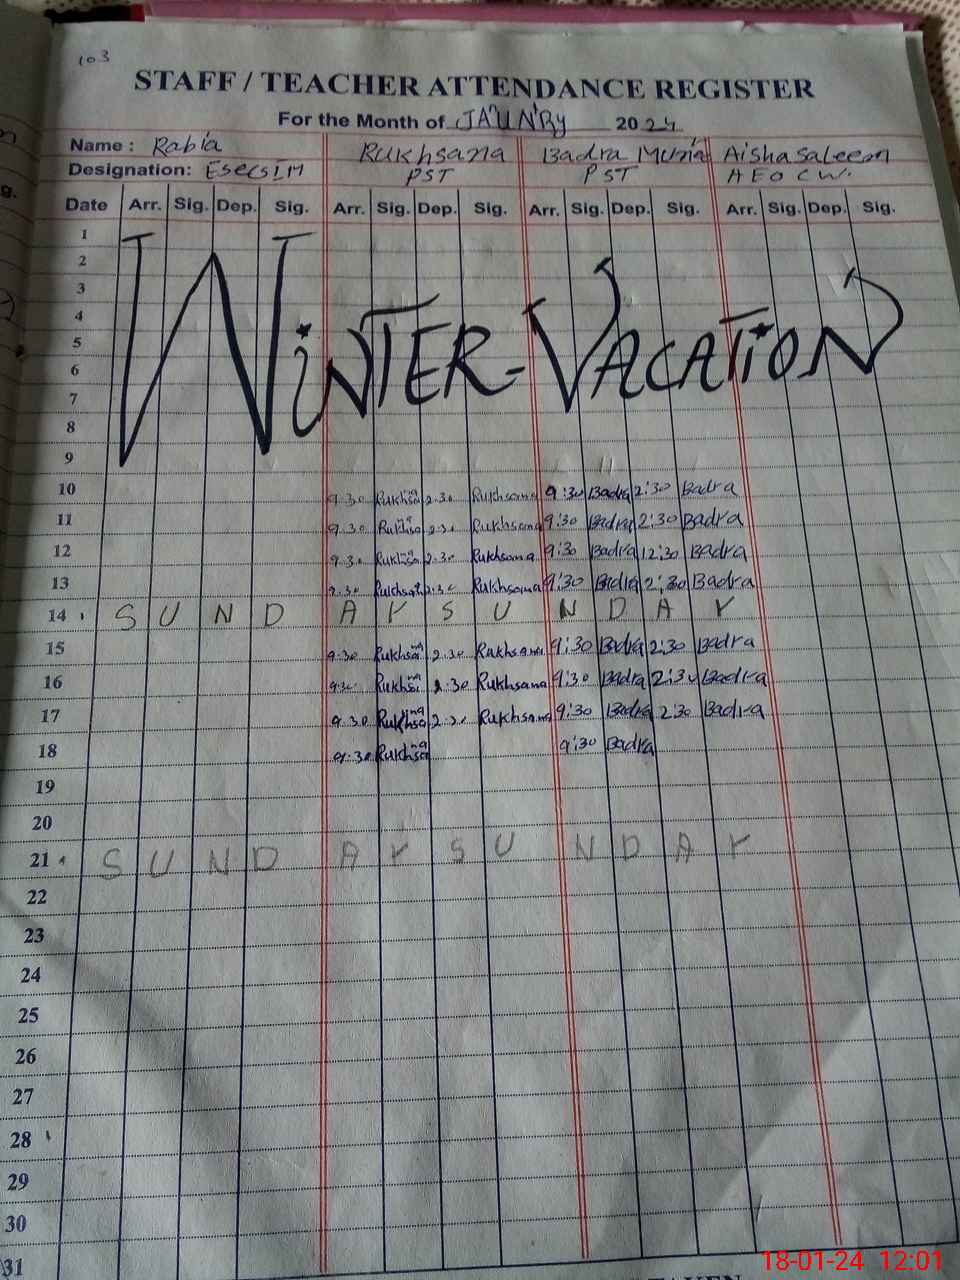 103
STAFF / TEACHER ATTENDANCE REGISTER
For the Month of JAUNRy 2024
Name : Rabia Rukhsana Badra Munia Aisha Saleem
Designation: PST PST AEO CW.
Date Arr. Sig. Dep. Sig. Arr. Sig. Dep. Sig. Arr. Sig. Dep. Sig. Arr. Sig. Dep. Sig.
1
2
3
4
WINTER-VACATION
5
6
7
8
9
10 9.30 Rukhsana 2.30 Rukhsana 9:30 Badra 2:30 Badra
11 9.30 Rukhsana 2.30 Rukhsana 9:30 Badra 2:30 Badra
12 9.30 Rukhsana 2.30 Rukhsana 9:30 Badra 12:30 Badra
13 9.30 Rukhsana 2.30 Rukhsana 9:30 Badra 2:30 Badra
14 S U N D A Y S U N D A Y
15 9.30 Rukhsana 2.30 Rukhsana 9:30 Badra 2:30 Badra
16 9.30 Rukhsana 2.30 Rukhsana 9:30 Badra 2:30 Badra
17 9.30 Rukhsana 2.30 Rukhsana 9:30 Badra 2:30 Badra
18 9.30 Rukhsana 9:30 Badra
19
20
21 S U N D A Y S U N D A Y
22
23
24
25
26
27
28
29
30
31
18-01-24 12:01